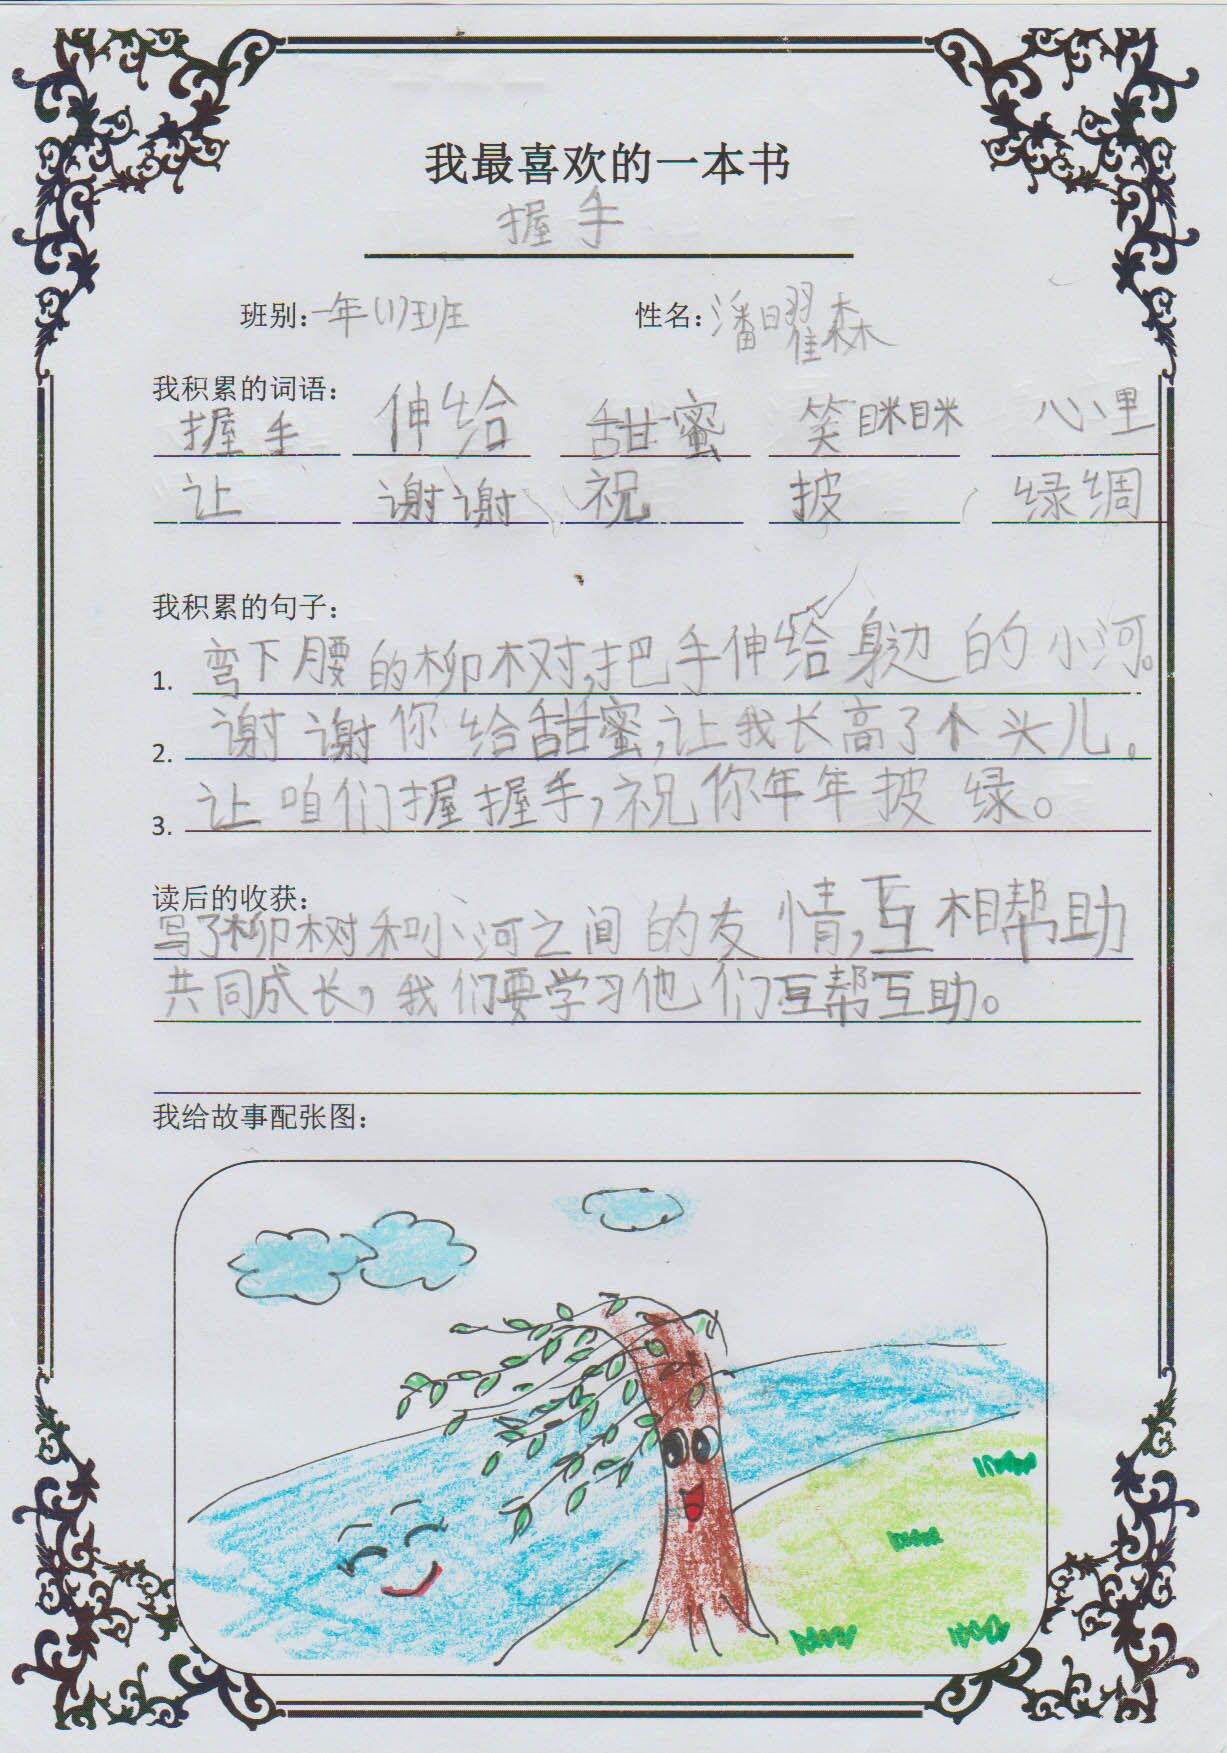 我最喜欢的一本书
握手
班别：一年(1)班 姓名：潘曜森
我积累的词语：
握手 伸给 甜蜜 笑眯眯 心里
让 谢谢 祝 披 绿绸
我积累的句子：
1. 弯下腰的柳树，把手伸给身边的小河。
2. 谢谢你给甜蜜，让我长高了个头儿。
3. 让咱们握握手，祝你年年披绿。
读后的收获：
写了柳树和小河之间的友情，互相帮助
共同成长，我们要学习他们互帮互助。
我给故事配张图：